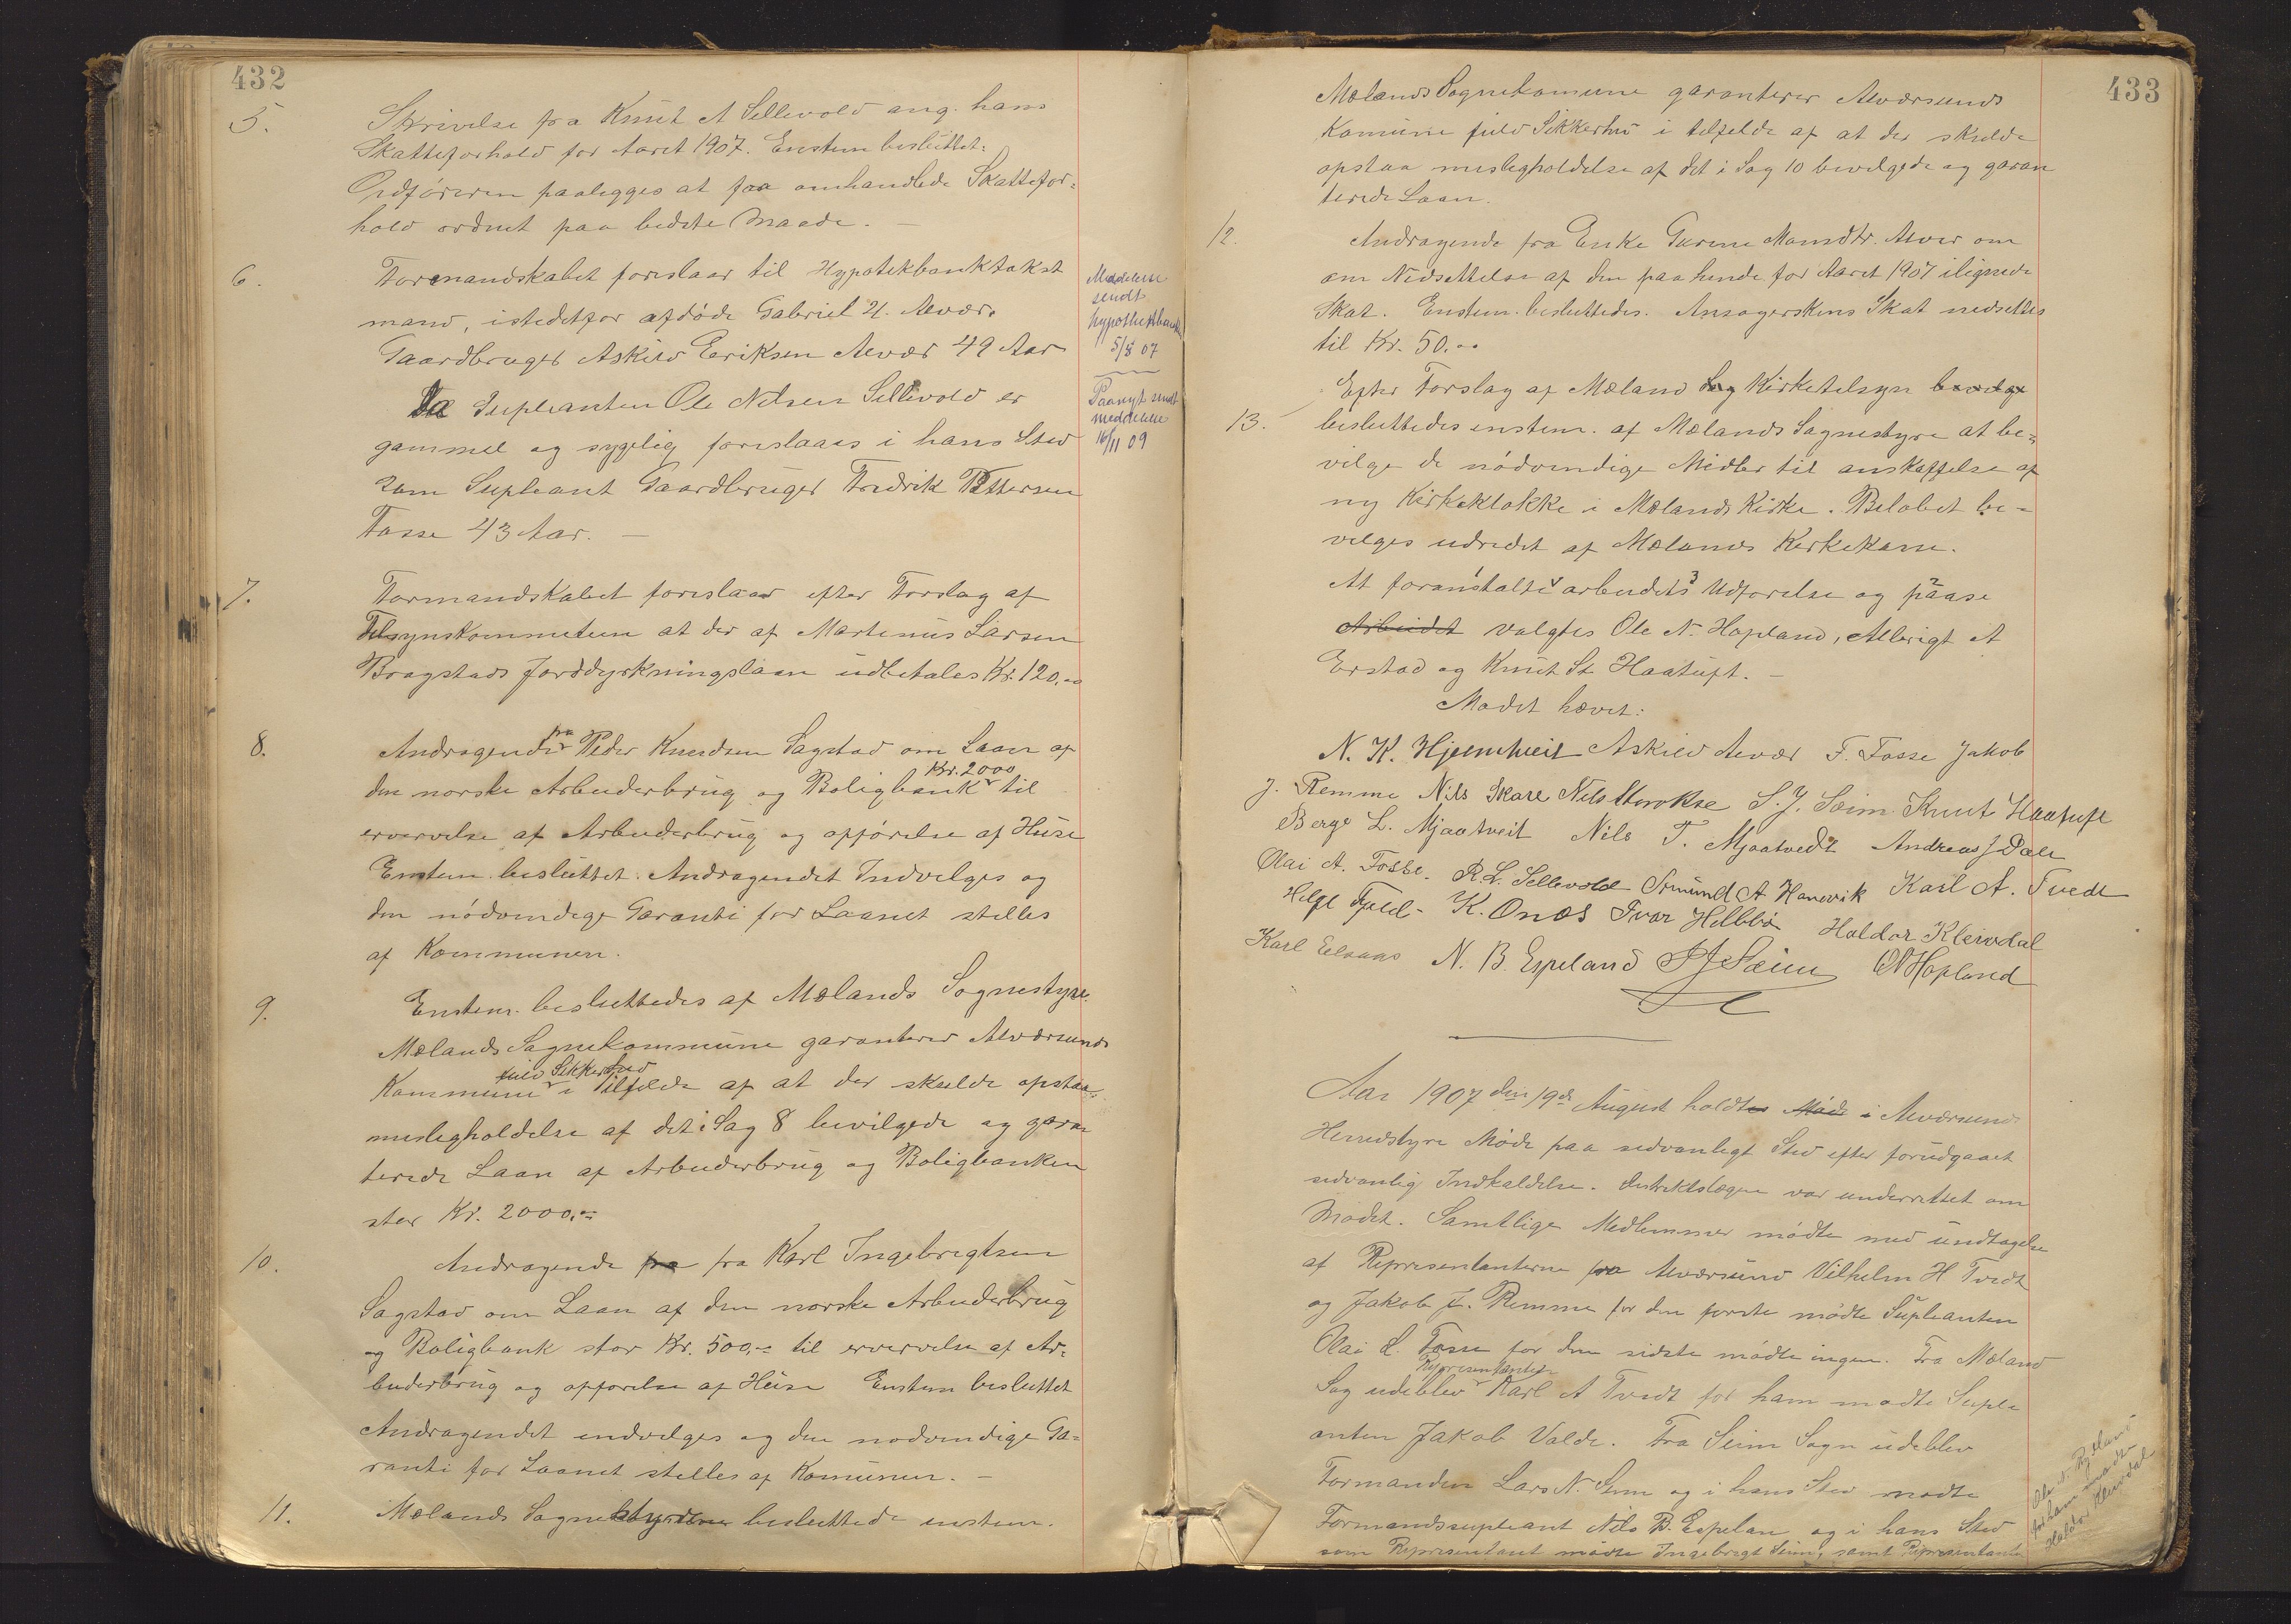 432
5.
Skrivelse fra Knut A Sellevold ang. hans
Skatteforhold for Aaret 1907. Enstem besluttet:
Ordføreren paalegges at faa omhandlede Skattefor=
hold ordnet paa bedste Maade. —
6.
Formandskabet foreslaar til Hypotekbanktakst
mand, istedetfor afdøde Gabriel H. Alvær.
Gaardbruger Askild Eriksen Alvær 49 Aar
Da Supleanten Ole Nilsen Sellevold er
gammel og sygelig foreslaaes i hans Sted
som Supleant Gaardbruger Fredrik Pettersen
Fosse 43 Aar. —
Meddelelse
sendt
hypothekbanken
5/8 07
Paanyt sendt
meddelelse
16/11 09
7.
Formandskabet foreslaar efter Forslag af
Tilsynskommiteen at der af Martinus Larsen
Bragstads Jorddyrkningslaan udbetales Kr. 120.00
8.
Andragende fra Peder Knudsen Sagstad om Laan af
den norske Arbeiderbrug og Boligbank Kr. 2000 til
ervervelse af Arbeiderbrug og opførelse af Huse
Enstem. besluttet. Andragendet Indvelges og
den nødvendige Garanti for Laanet stilles
af Kommunen.
9.
Enstem. besluttedes af Mælands Sognestyre.
Mælands Sognekommune garanterer Alværsunds
Kommune fuld Sikkerhed i Tilfelde af at der skulde opstaa
misligholdelse af det i Sag 8 bevilgede og garan
terede Laan af Arbeiderbrug og Boligbanken
stor Kr. 2000.00
10.
Andragende fra fra Karl Ingebrigtsen
Sagstad om Laan af den norske Arbeiderbrug
og Boligbank stor Kr. 500.00 til ervervelse af Ar=
beiderbrug og opførelse af Huse Enstem besluttet
Andragendet indvelges og den nødvendige Ga=
ranti for Laanet stilles af Komunen. —
11.
Mælands Sognestyre besluttede enstem.
433
Mælands Sognekomune garanterer Alværsunds
Komune fuld Sikkerhed i tilfelde af at der skulde
opstaa misligholdelse af det i Sag 10 bevilgede og garan
terede Laan.
12.
Andragende fra Enke Gurine Monsdtr. Alver om
om Nedsettelse af den paa hende for Aaret 1907 ilignede
Skat. Enstem. besluttedes. Ansøgerskens Skat nedsettes
til Kr. 50.00
Efter Forslag af Mæland Sog Kirketilsyn
13.
besluttedes enstem. af Mælands Sognestyre at be=
vilge de nødvendige Midler til anskaffelse af
ny Kirkeklokke i Mælands Kirke. Beløbet be=
vilges udredet af Mælands Kirkekasse.
At foranstalte arbeidets Udførelse og paase
Arbeidet valgtes Ole N. Hopland, Albrigt A
Erstad og Knut St Haatuft. —
Mødet hævet:
N. K. Hjelmtveit Askild Alvær F. Fosse Jakob
J. Remme Nils Skare Nils Storokse S. J. Seim Knut Haatuft
Berge L. Mjaatveit Nils T. Mjaatvedt Andreas J Dale
Olai A. Fosse. R. L. Sellevold Amund A Hanevik Karl A. Tvedt
Helge Fjeld. K. Onæs Ivar Hillebø Haldor Kleivdal
Karl Eelvaas N. B. Espeland J J Seim ON Hopland
Aar 1907 den 19de August holdtes Møde i Alværsund
Herredstyre Møde paa sedvanligt Sted efter forudgaaet
sedvanlig Indkaldelse. Distriktslægen var underrettet om
Mødet. Samtlige Medlemmer mødte med undtagelse
af Representanterne fra Alværsund Vilhelm H Tvedt
og Jakob J. Remme for den første mødte Supleanten
Olai L. Fosse for den sidste mødte ingen. Fra Mæland
Sog udeblev Representanten Karl A Tvedt for ham mødte Suple
anten Jakob Valde. Fra Seim Sogn udeblev
Formanden Lars N. Seim og i hans Sted mødte
Formandssupleant Nils B. Espelan og i hans Sted
som Representant mødte Ingebrigt Seim, samt Representant
for ham mødte
Haldor Kleivdal